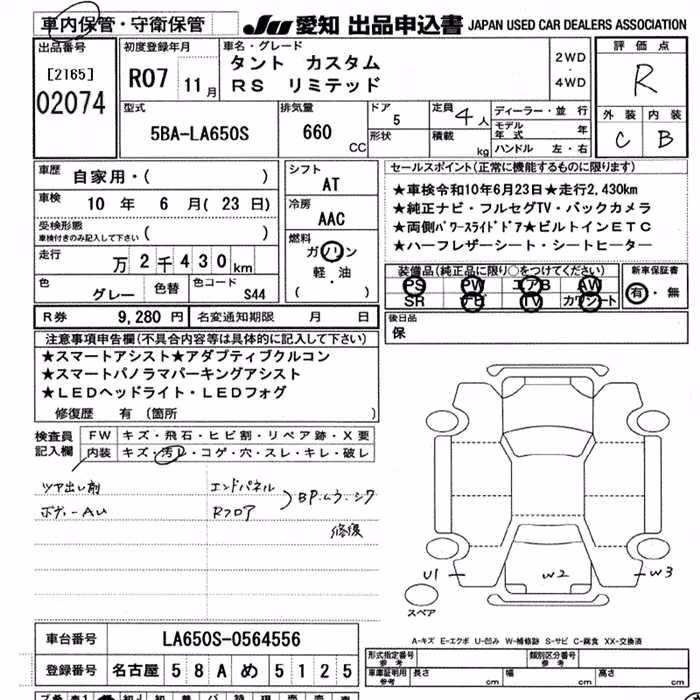 車内保管・守衛保管
JU 愛知 出品申込書 JAPAN USED CAR DEALERS ASSOCIATION
出品番号
[2165]
02074
初度登録年月
R07 11月
車名・グレード
タント カスタム
RS リミテッド
2WD
・
4WD
評価点
R
外装 内装
C B
型式
5BA-LA650S
排気量
660 CC
ドア
5
形状
定員 4人
積載 kg
ディーラー・並行
モデル年式 年
ハンドル 左・右
車歴 自家用・( )
車検 10 年 6 月(23 日)
受検形態
車検付きのみ記入して下さい ( )
走行 万2千430km
色 グレー 色替 色コード S44
シフト
AT
冷房
AAC
燃料
ガソリン
軽・油
( )
R券 9,280 円 名変通知期限 月 日
セールスポイント(正常に機能するものに限ります)
★車検令和10年6月23日★走行2,430km
★純正ナビ・フルセグTV・バックカメラ
★両側パワースライドドア★ビルトインETC
★ハーフレザーシート・シートヒーター
装備品(純正品に限り○をつけてください)
PS PW エアB AW
SR ナビ TV カワシート
新車保証書
有・無
後日品
保
注意事項申告欄(不具合内容等は具体的に記入して下さい)
★スマートアシスト★アダプティブクルコン
★スマートパノラマパーキングアシスト
★LEDヘッドライト・LEDフォグ
修復歴 有 (箇所 )
検査員記入欄
FW キズ・飛石・ヒビ割・リペア跡・X要
内装 キズ・汚レ・コゲ・穴・スレ・キレ・破レ
ツア出し剤
ボデーAU
エンドパネル
Rフロア
BP.ムラ.シワ
修復
U1
W2
W3
スペア
A-キズ E-エクボ U-凹み W-補修跡 S-サビ C-腐食 XX-交換済
車台番号 LA650S-0564556
登録番号 名古屋 58A め 5125
形式指定番号
参考
類別区分番号
参考
車庫証明用
参考
長さ cm 幅 cm 高さ cm